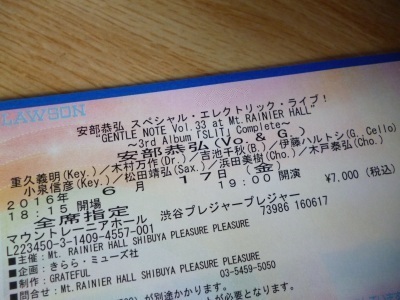 LAWSON
安部恭弘 スペシャル・エレクトリック・ライブ!
"GENTLE NOTE Vol.33 at Mt.RAINIER HALL"
~3rd Album「SLIT」Complete~
安部恭弘(Vo. & G.)
重久義明(Key.)/木村万作(Dr.)/吉池千秋(B.)/伊藤ハルトシ(G.Cello)
小泉信彦(Key.)/松田靖弘(Sax.)/浜田美樹(Cho.)/木戸泰弘(Cho.)
2016年 6月 17日(金)
18:15 開場 19:00 開演 ¥7,000(税込)
全席指定
マウントレーニアホール 渋谷プレジャープレジャー
L223450-3-1409-4557-001 73986 160617
■主催:Mt. RAINIER HALL SHIBUYA PLEASURE PLEASURE
■企画:きらら・ミューズ社
■制作:GRATEFUL
Mt. RAINIER HALL SHIBUYA PLEASURE PLEASURE 03-5459-5050
が別途かかります。
が必要となります。